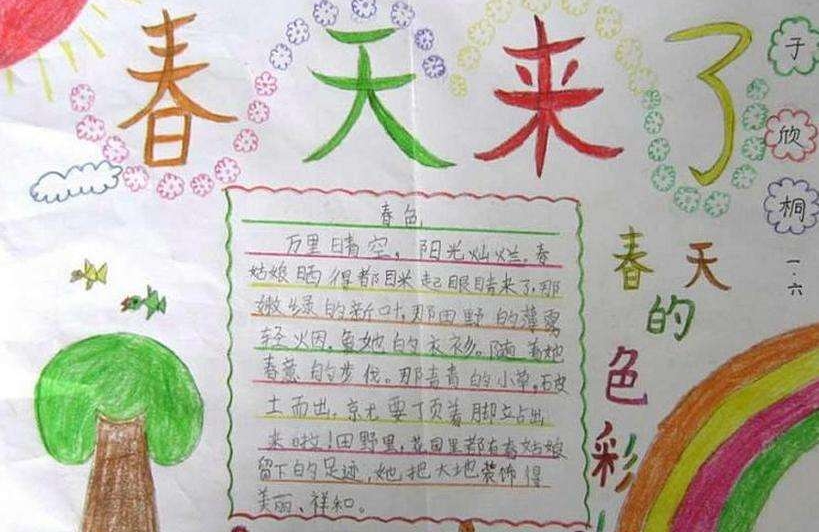 春天来了
于欣桐
一.六
春色
万里晴空，阳光灿烂，春
姑娘晒得都眯起眼睛来了，那
嫩绿的新叶，那田野的薄雾
轻烟，是她的衣衫。随着她
春蕉的步伐。那青青的小草，破
土而出，京尤要丁页着脚立占出
来啦！田野里，花园里都有春姑娘
留下的足迹，她把大地装饰得
美丽、祥和。
春天
的
色
彩